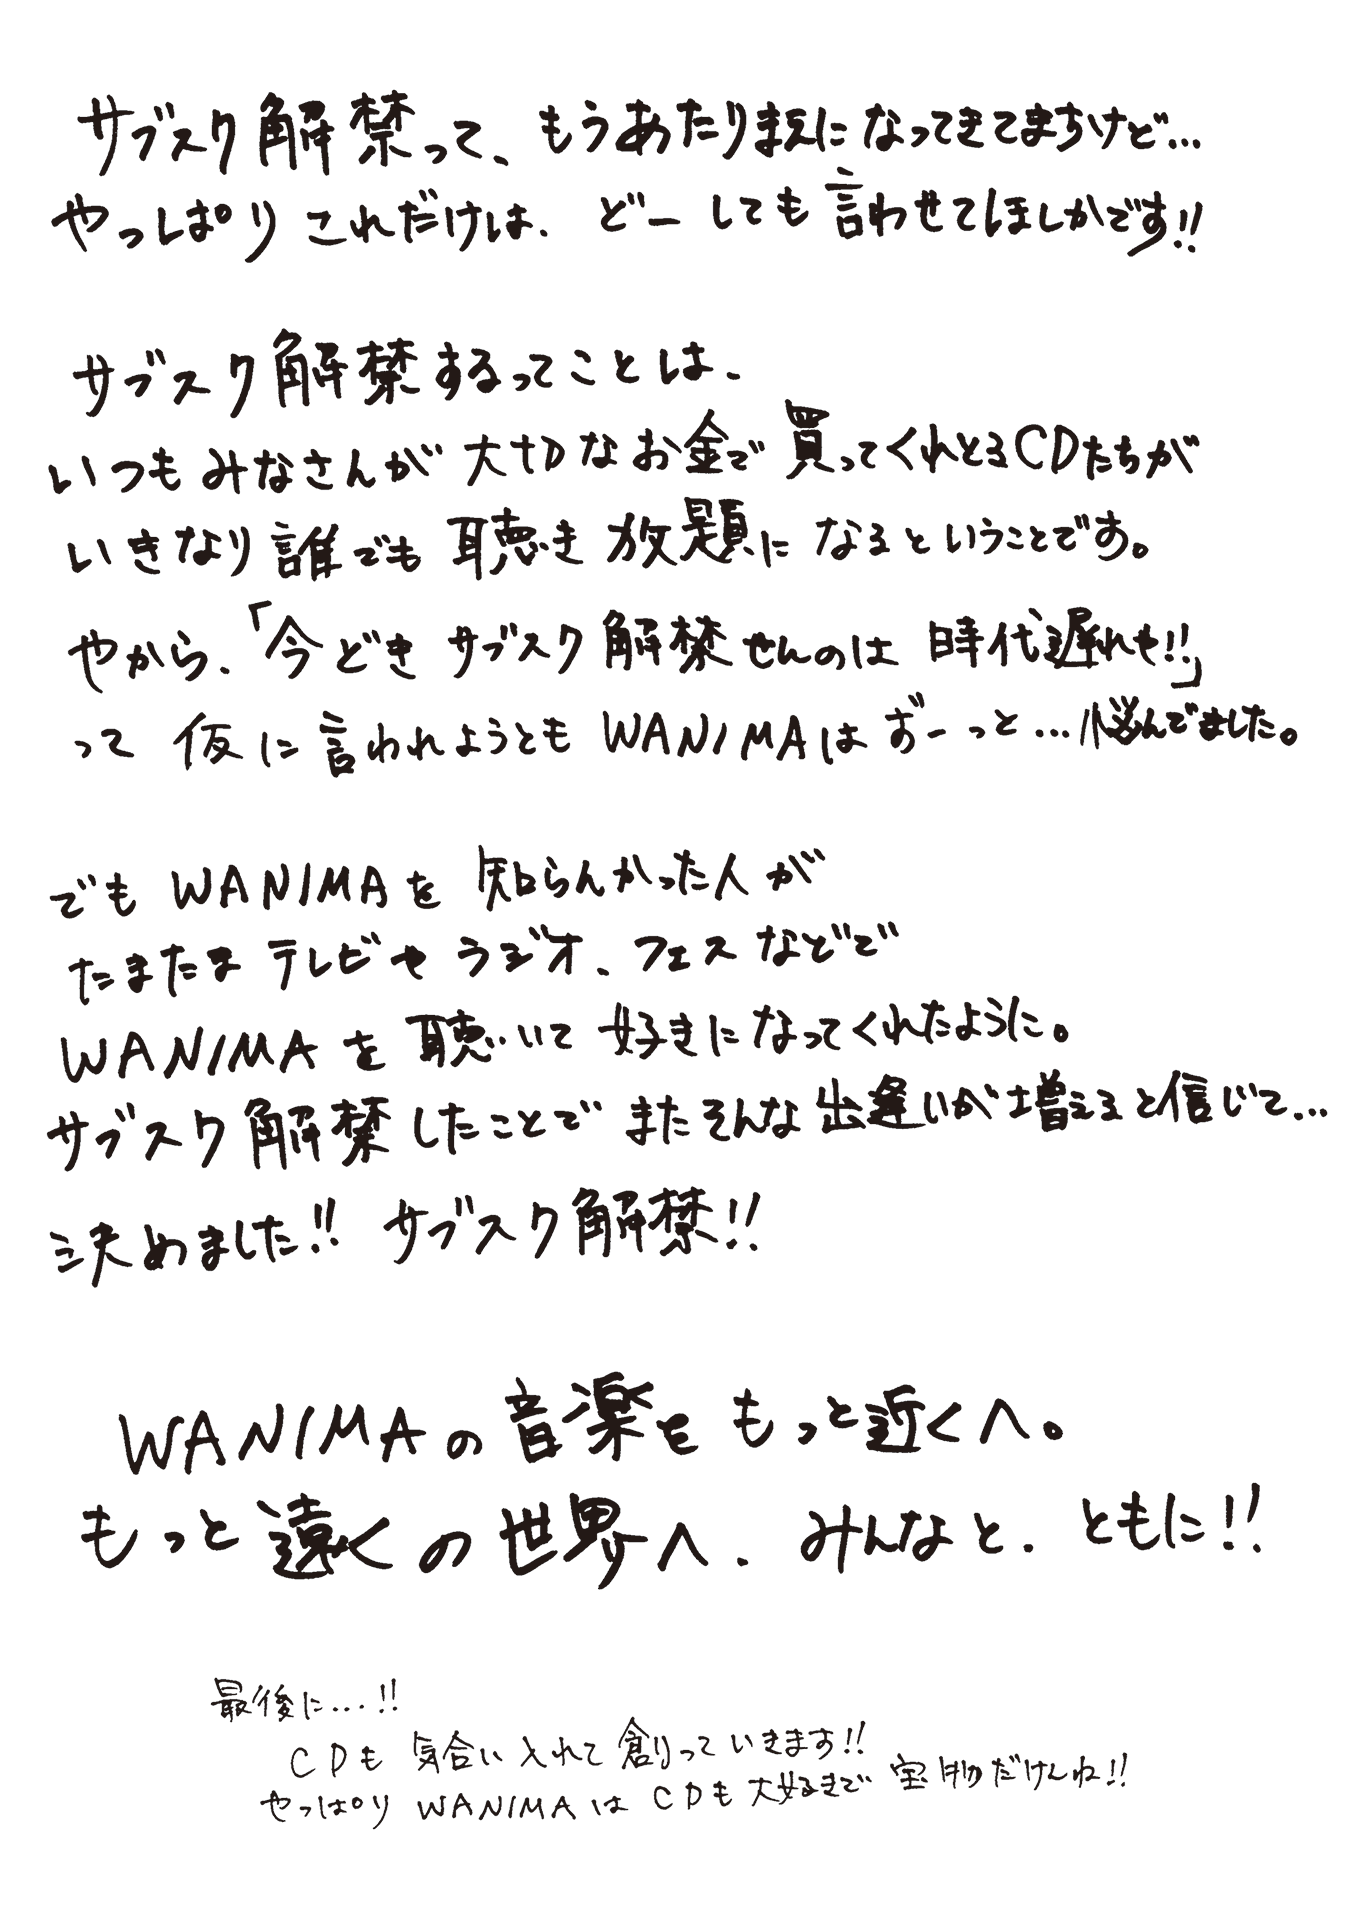 サブスク解禁って、もうあたりまえになってきてますけど…
やっぱりこれだけは、どーしても言わせてほしかです!!
サブスク解禁するってことは、
いつもみなさんが大切なお金で買ってくれとるCDたちが
いきなり誰でも聴き放題になるということです。
やから、「今どきサブスク解禁せんのは時代遅れや!!」
って仮に言われようともWANIMAはずーっと…悩んでました。
でもWANIMAを知らんかった人が
たまたまテレビやラジオ、フェスなどで
WANIMAを聴いて好きになってくれたように。
サブスク解禁したことでまたそんな出逢いが増えると信じて…
決めました!! サブスク解禁!!
WANIMAの音楽をもっと近くへ。
もっと遠くの世界へ、みんなと、ともに!!
最後に…!!
CDも気合い入れて創っていきます!!
やっぱりWANIMAはCDも大好きで宝物だけんね!!